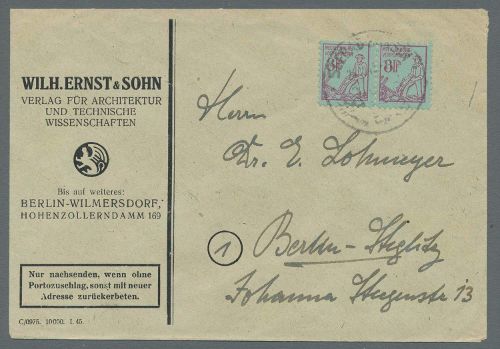 WILH. ERNST & SOHN
VERLAG FÜR ARCHITEKTUR
UND TECHNISCHE
WISSENSCHAFTEN
Bis auf weiteres:
BERLIN-WILMERSDORF,
HOHENZOLLERNDAMM 169
Nur nachsenden, wenn ohne
Portozuschlag, sonst mit neuer
Adresse zurückerbeten.
C/0975. 10000. I. 45.
Herrn
Dr. E. Lohmeyer
1
Berlin-Steglitz
Johanna Stegenstr 13